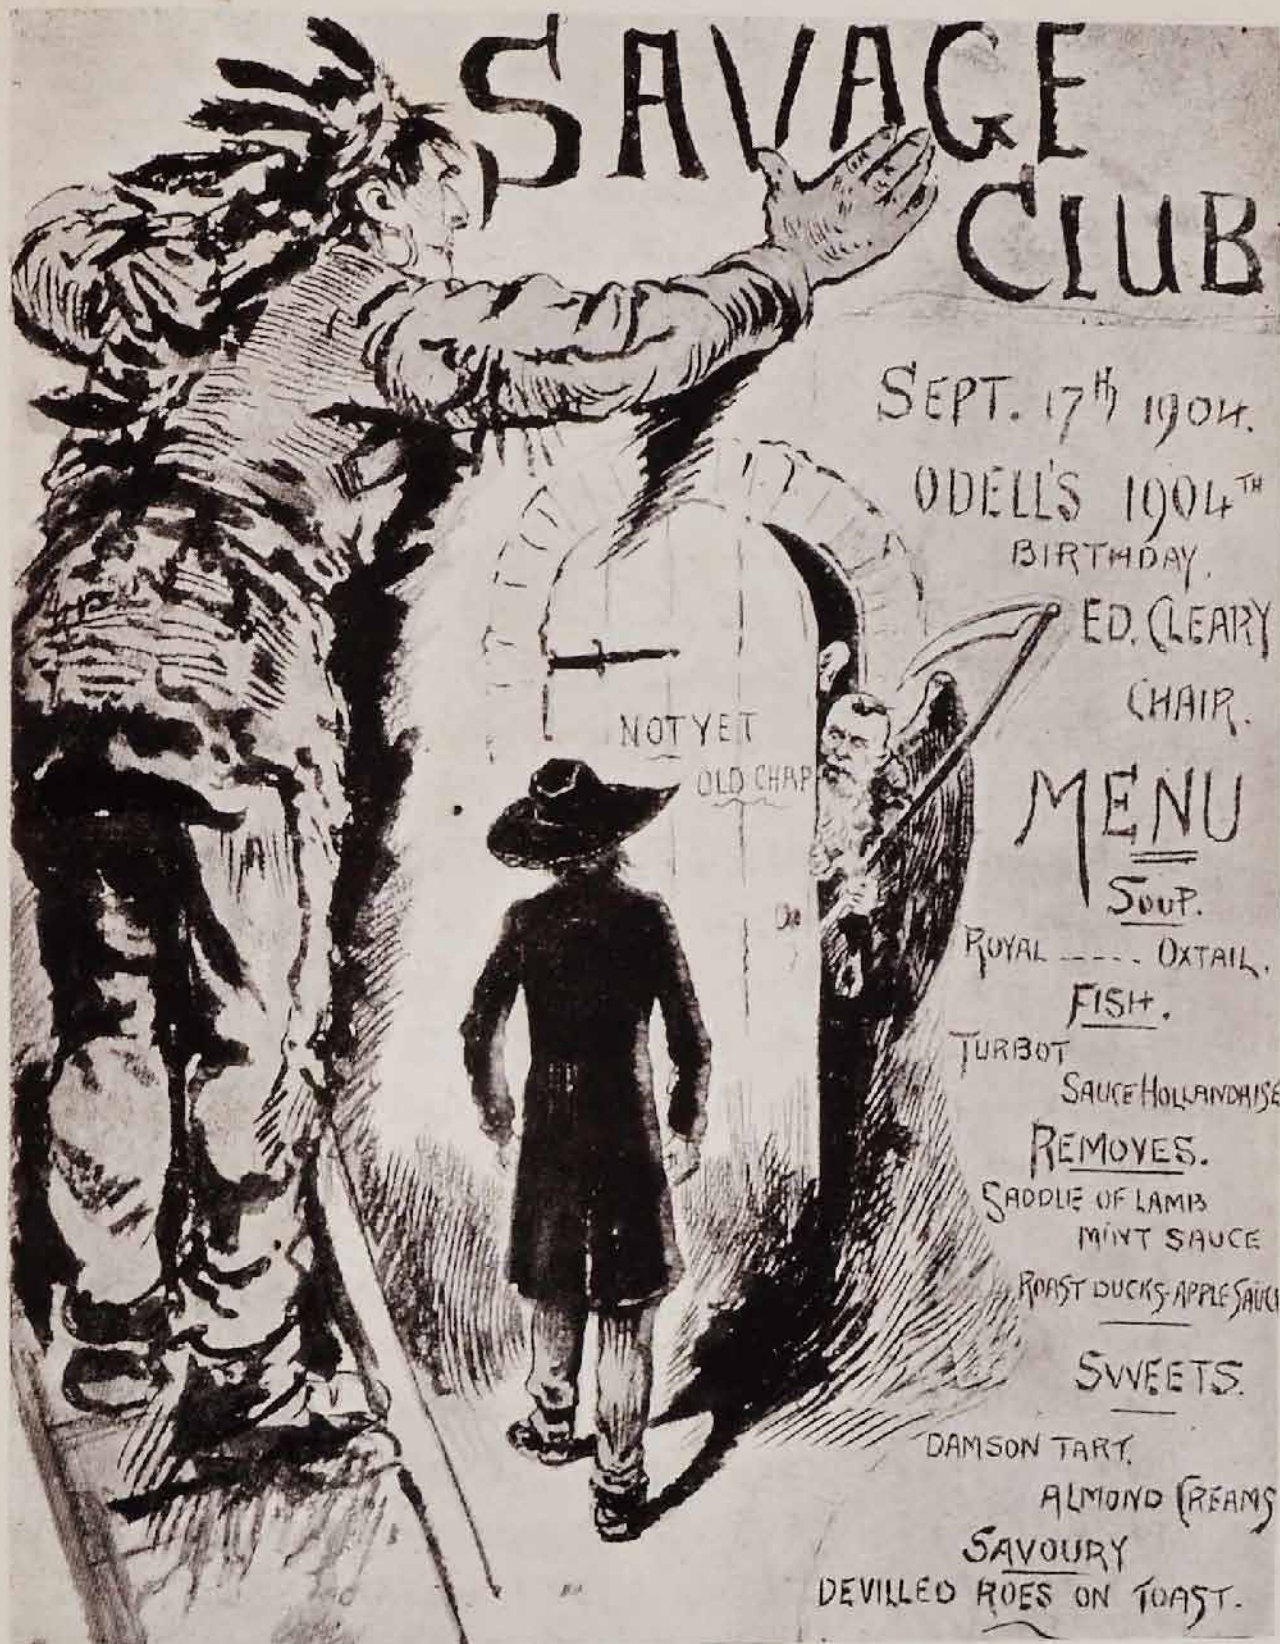 SAVAGE
CLUB
SEPT. 17TH 1904.
ODELL'S 1904TH
BIRTHDAY.
ED. CLEARY
CHAIR.
NOT YET
OLD CHAP
MENU
SOUP.
ROYAL ----- OXTAIL.
FISH.
TURBOT
SAUCE HOLLANDAISE
REMOVES.
SADDLE OF LAMB
MINT SAUCE
ROAST DUCKS-APPLE SAUCE
SWEETS.
DAMSON TART.
ALMOND CREAMS
SAVOURY
DEVILLED ROES ON TOAST.